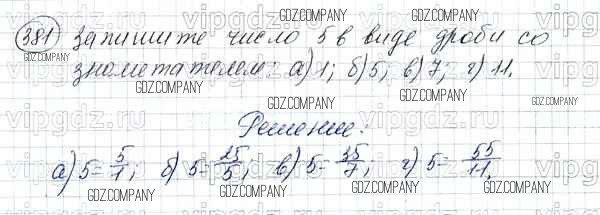 381) Запишите число 5 в виде дроби со
знаметателем: а) 1; б) 5; в) 7; г) 11.
Решение:
а) 5 = 5/1; б) 5 = 25/5; в) 5 = 35/7; г) 5 = 55/11.